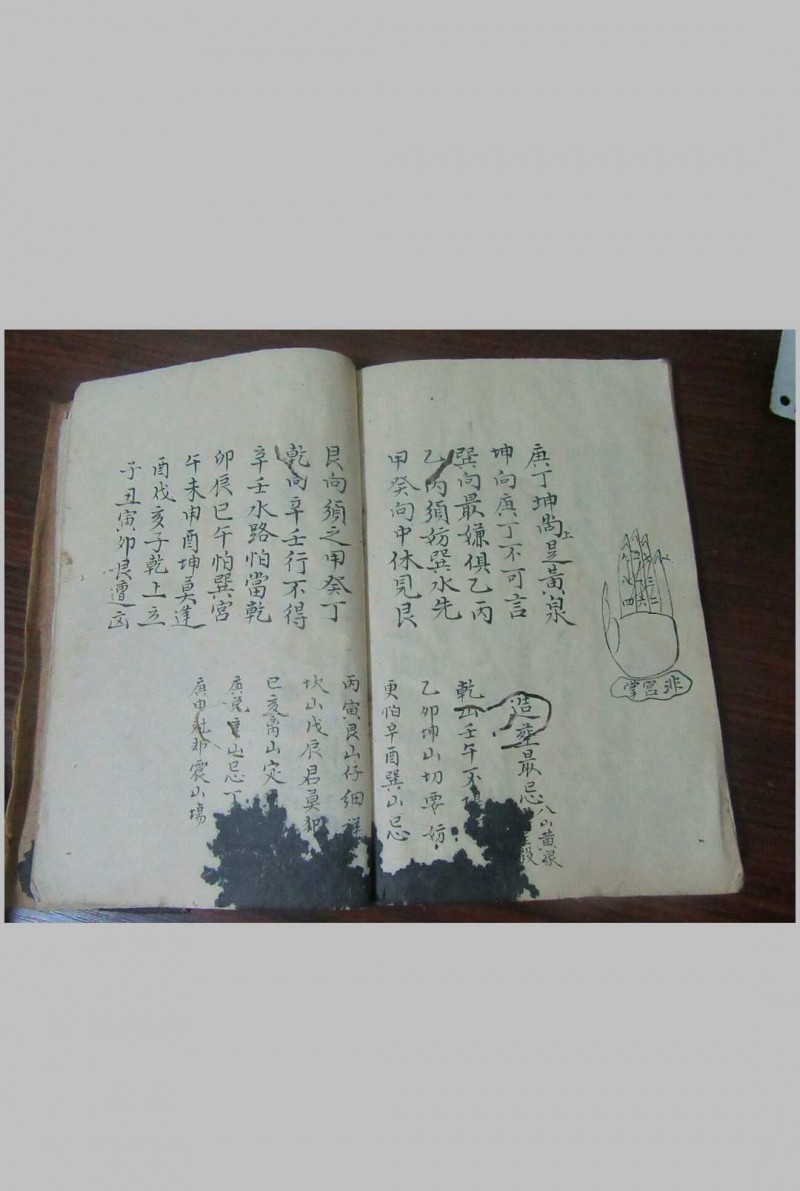 非宫掌
庚丁坤向上是黄泉
坤向庚丁不可言
巽向最嫌俱乙丙
乙丙須妨巽水先
甲癸向中休見艮
艮向須之甲癸丁
乾向辛壬行不得
辛壬水路怕當乾
卯辰巳午怕巽宮
午未申酉坤莫逢
酉戌亥子乾上立
子丑寅卯恨遭凶
造塋最忌八山黄泉
乾山壬午不
乙卯坤山切要妨
更怕辛酉巽山忌
丙寅艮山仔細詳
坎山戊辰君莫犯
已亥离山灾
庚 山忌丁
庚申 震山塲